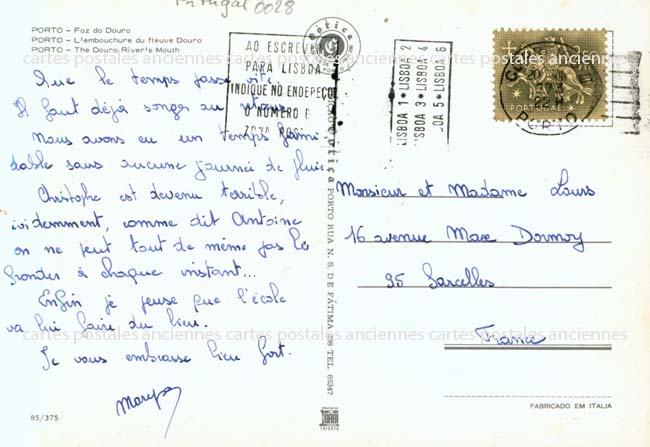 Portugal 0028
PORTO - Foz do Douro
PORTO - L'embouchure du fleuve Douro
PORTO - The Douro River's Mouth
AO ESCREVER
PARA LISBOA
INDIQUE NO ENDEREÇO
O NÚMERO D
ZONA POS
LISBOA 1 • LISBOA 2
LISBOA 3 • LISBOA 4
OA 5 • LISBOA 6
2$50
PORTUGAL
PORTO
Que le temps passe vite
Il faut déjà songer au retour
Nous avons eu un temps formi-
dable sans aucune journée de pluie
Christophe est devenu terrible,
évidemment, comme dit Antoine
on ne peut tout de même pas le
gronder à chaque instant...
Enfin je pense que l'école
va lui faire du bien.
Je vous embrasse bien fort.
PORTO RUA N. S. DE FÁTIMA 296 TEL. 65347
Monsieur et Madame Lours
16 avenue Marx Dormoy
95 Sarcelles
France
85/375
FABRICADO EM ITALIA
cartes postales anciennes cartes postales anciennes cartes postales anciennes
cartes postales anciennes cartes postales anciennes cartes postales anciennes